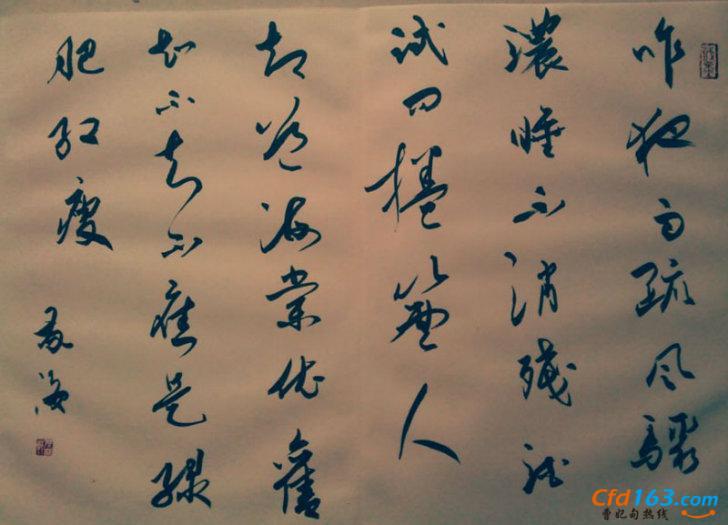 昨夜雨疏风骤
濃睡不消残酒
试问捲簾人
却道海棠依舊
知不知不應是绿
肥红瘦
Cfd163.com
曹妃甸热线